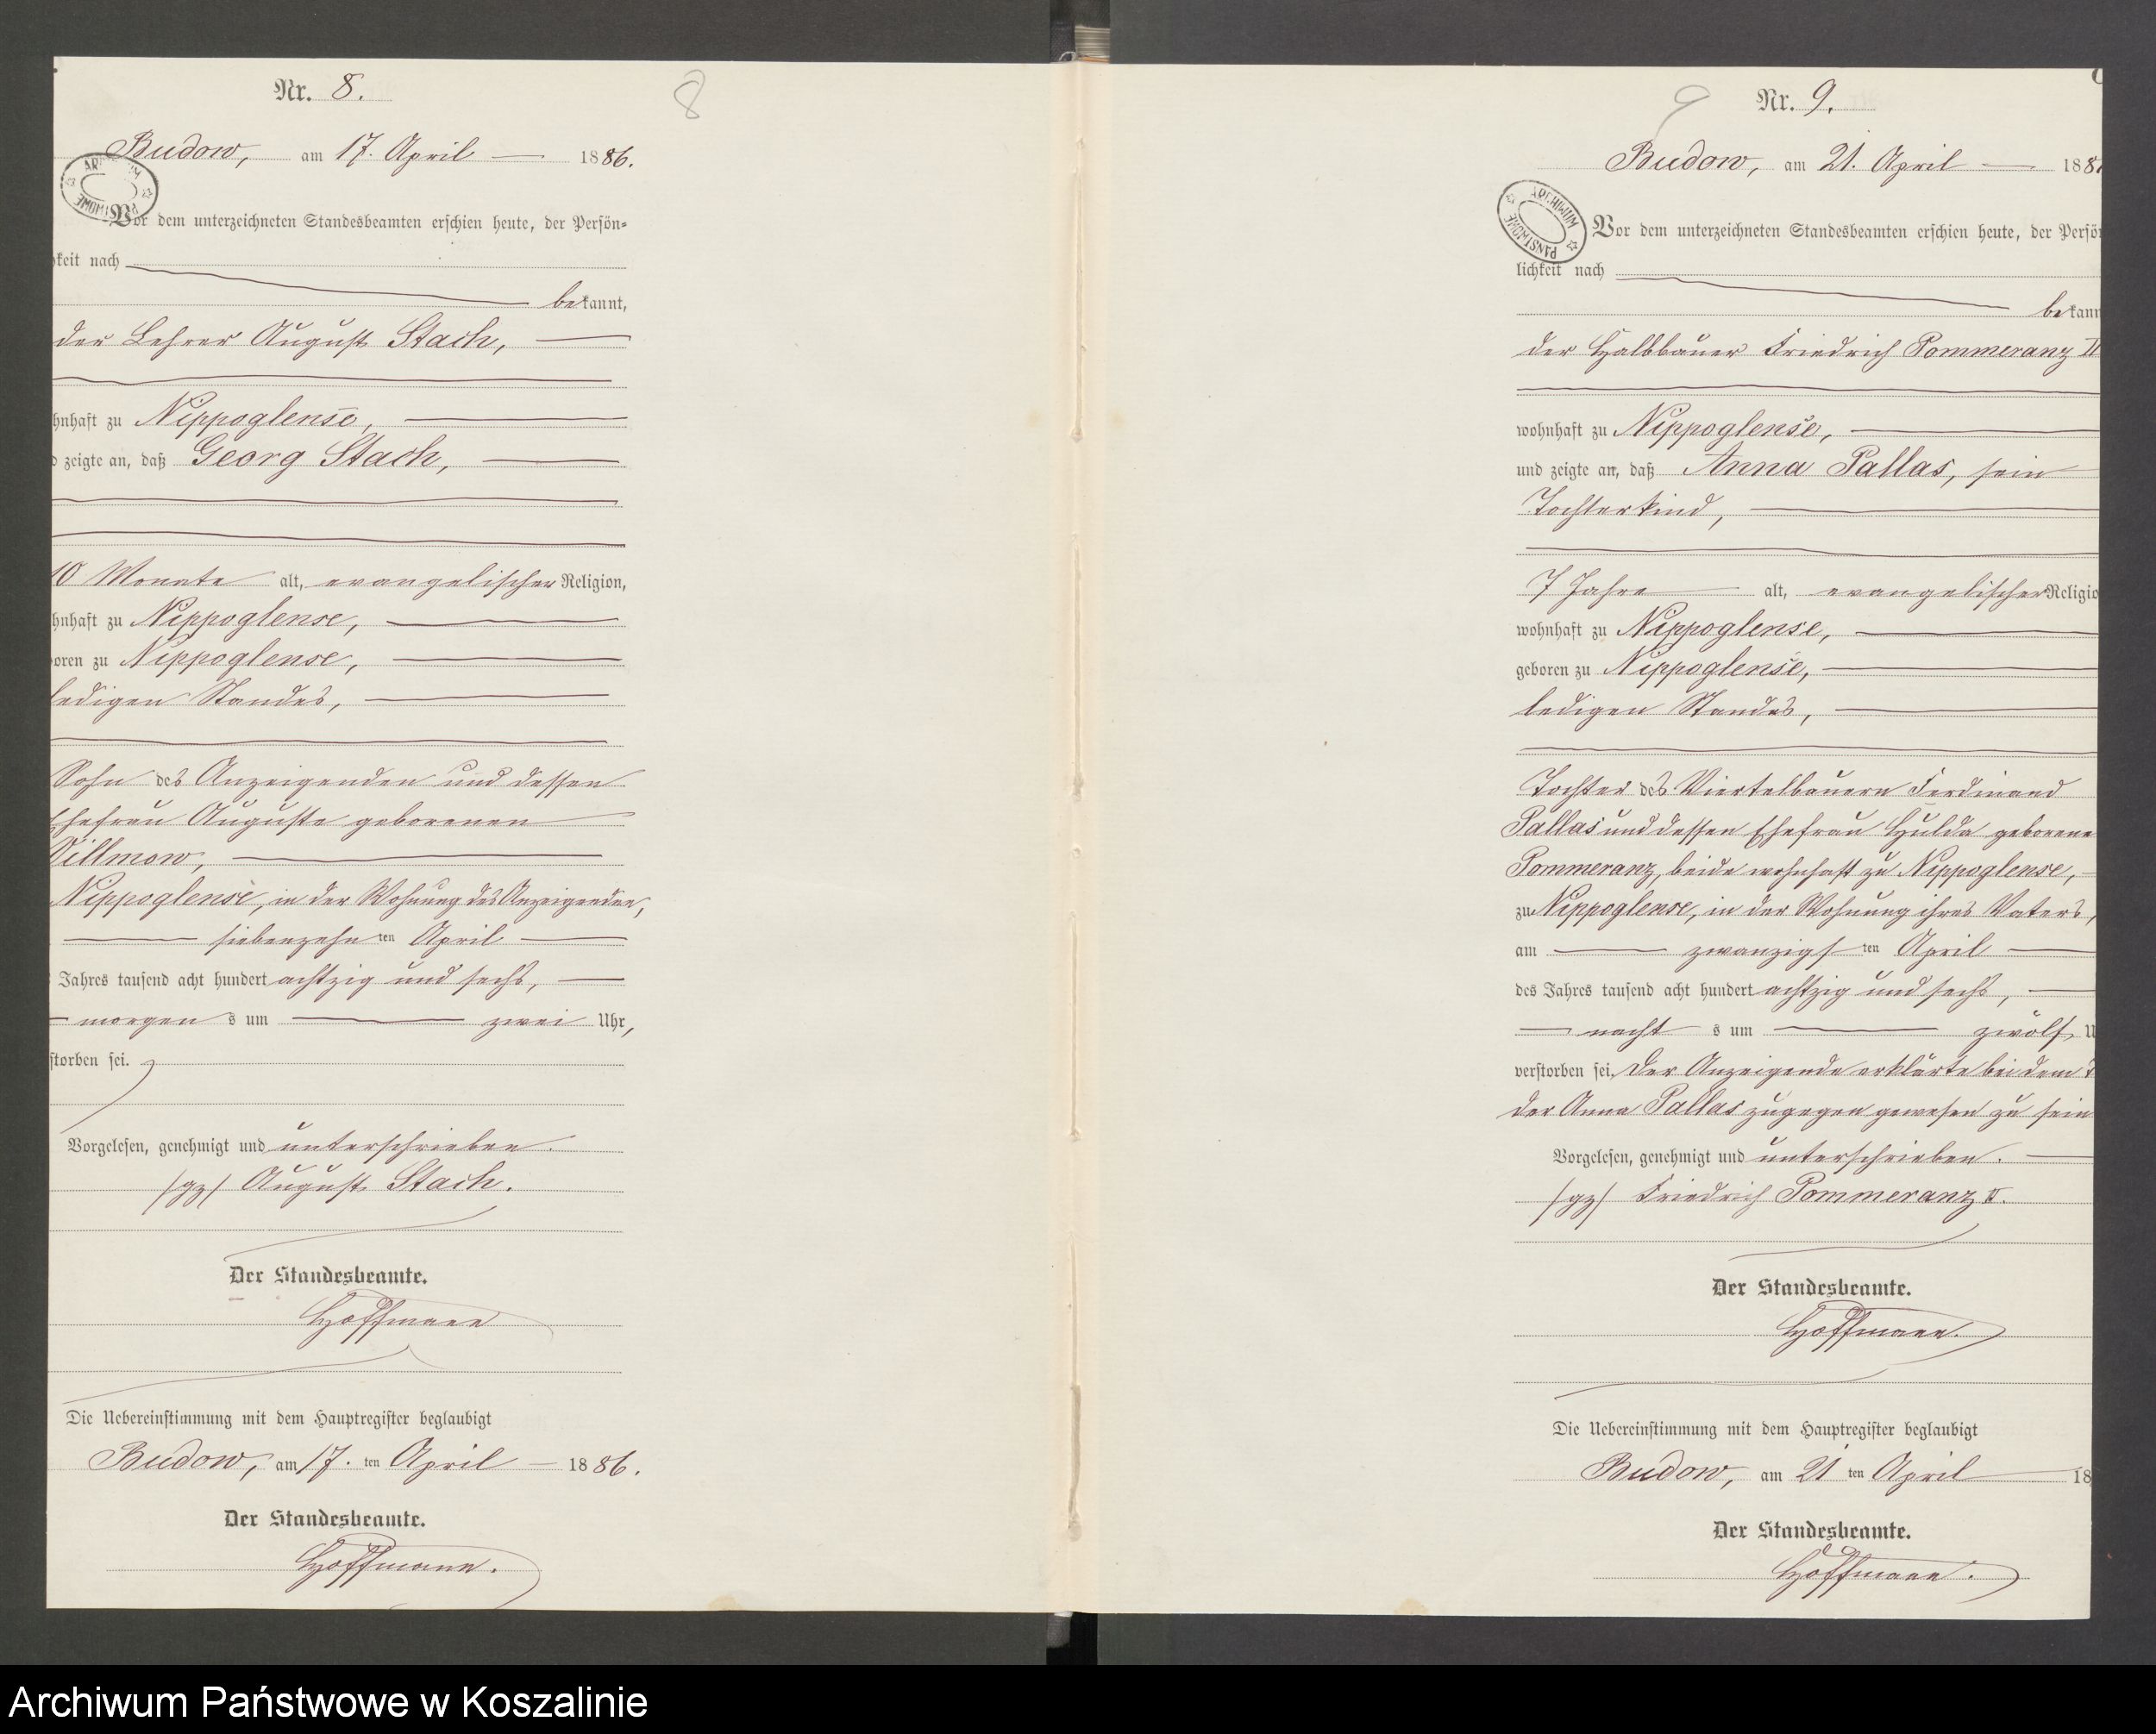 Nr. 8.
8
Budow, am 17. April 1886.
ARCHIWUM PAŃSTWOWE
Vor dem unterzeichneten Standesbeamten erschien heute, der Persön-
keit nach
bekannt,
der Lehrer August Stach,
hnhaft zu Nippoglense,
zeigte an, daß Georg Stach,
10 Monate alt, evangelischer Religion,
hnhaft zu Nippoglense,
oren zu Nippoglense,
ledigen Standes,
Sohn des Anzeigenden und dessen
Ehefrau Auguste geborenen
Sillmow,
Nippoglense, in der Wohnung des Anzeigenden,
siebenzehn ten April
Jahres tausend acht hundert achtzig und sechs,
morgen s um zwei Uhr,
storben sei.
Vorgelesen, genehmigt und unterschrieben.
/gz/ August Stach.
Der Standesbeamte.
Hoffmann
Die Uebereinstimmung mit dem Hauptregister beglaubigt
Budow, am 17. ten April 1886.
Der Standesbeamte.
Hoffmann.
9
Nr. 9.
Budow, am 21. April 188
ARCHIWUM PAŃSTWOWE
Vor dem unterzeichneten Standesbeamten erschien heute, der Persö
lichkeit nach
bekann
der Halbbauer Friedrich Pommeranz II
wohnhaft zu Nippoglense,
und zeigte an, daß Anna Pallas, sein
Tochterkind,
7 Jahre alt, evangelischer Religio
wohnhaft zu Nippoglense,
geboren zu Nippoglense,
ledigen Standes,
Tochter des Viertelbauern Ferdinand
Pallas und dessen Ehefrau Hulda geborene
Pommeranz, beide wohnhaft zu Nippoglense,
zu Nippoglense, in der Wohnung ihres Vaters,
am zwanzigs ten April
des Jahres tausend acht hundert achtzig und sechs,
nacht s um zwölf U
verstorben sei. Der Anzeigende erklärte bei dem
der Anna Pallas zugegen gewesen zu sein
Vorgelesen, genehmigt und unterschrieben.
/gz/ Friedrich Pommeranz II.
Der Standesbeamte.
Hoffmann.
Die Uebereinstimmung mit dem Hauptregister beglaubigt
Budow, am 21 ten April 18
Der Standesbeamte.
Hoffmann.
Archiwum Państwowe w Koszalinie